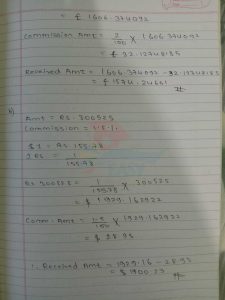 = £ 1606.374092
Commission Amt = 2/100 × 1606.374092
= £ 32.12748185
Received Amt = 1606.374092 - 32.12748185
= £ 1574.24661
b)
Amt = Rs. 300525
Commission = 1.5%
$1 = Rs 155.78
1 Rs = 1/155.78
Rs 300525 = 1/155.78 × 300525
= $ 1929.162922
Comm. Amt = 1.5/100 × 1929.162922
= $ 28.93
∴ Received Amt = 1929.16 - 28.93
= $ 1900.23